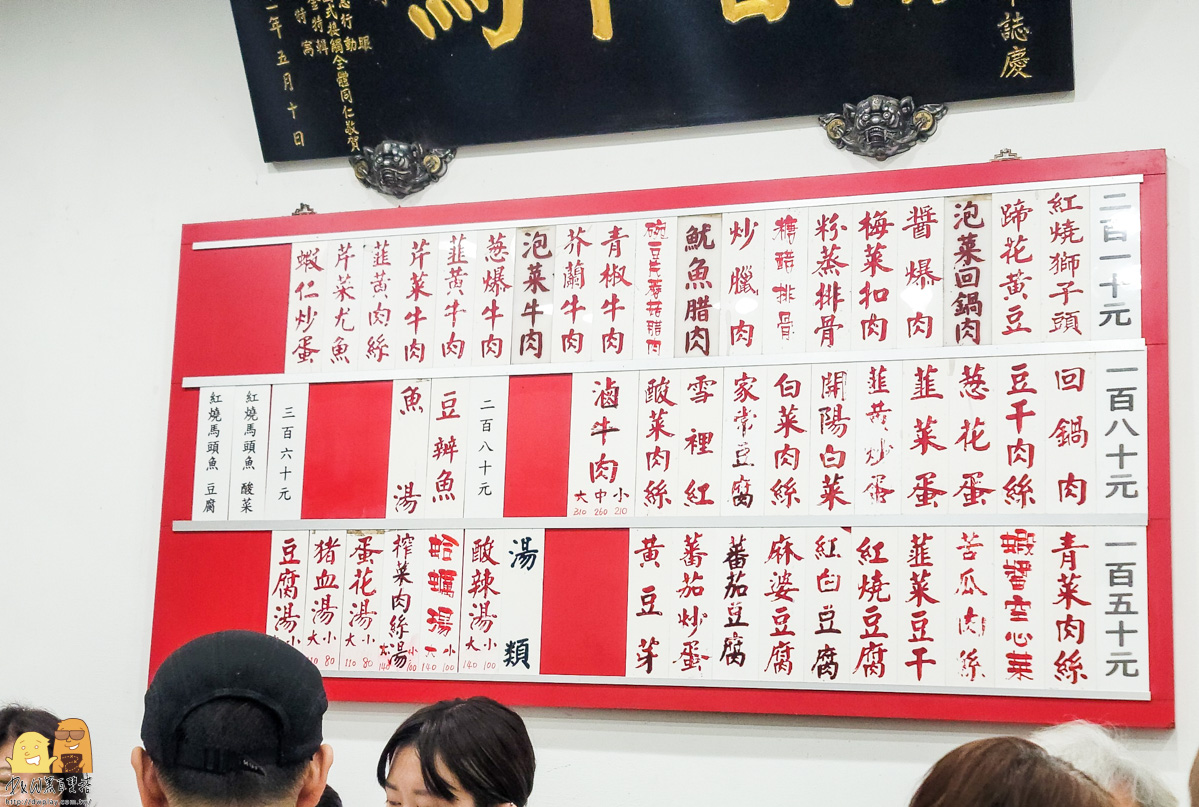 誌慶
眼
年五月十日
全體同仁敬賀
二百一十元
紅燒獅子頭
蹄花黃豆
泡菜回鍋肉
醬爆肉
梅菜扣肉
粉蒸排骨
糖醋排骨
炒臘肉
魷魚腊肉
青椒牛肉
芥蘭牛肉
泡菜牛肉
葱爆牛肉
韮黃牛肉
芹菜牛肉
韮黃肉絲
芹菜尤魚
蝦仁炒蛋
一百八十元
回鍋肉
豆干肉絲
葱花蛋
韮菜蛋
韮黃炒蛋
開陽白菜
白菜肉絲
家常豆腐
雪裡紅
酸菜肉絲
滷牛肉
大 中 小
310 260 210
二百八十元
豆瓣魚
魚湯
三百六十元
紅燒馬頭魚 酸菜
紅燒馬頭魚 豆腐
一百五十元
青菜肉絲
蝦醬空心菜
苦瓜肉絲
韮菜豆干
紅燒豆腐
紅白豆腐
麻婆豆腐
蕃茄豆腐
蕃茄炒蛋
黃豆芽
湯類
酸辣湯 大 小
140 100
蛤蠣湯 大 小
140 100
榨菜肉絲湯 大 小
140 100
蛋花湯 大 小
110 80
猪血湯 大 小
110 80
豆腐湯 小